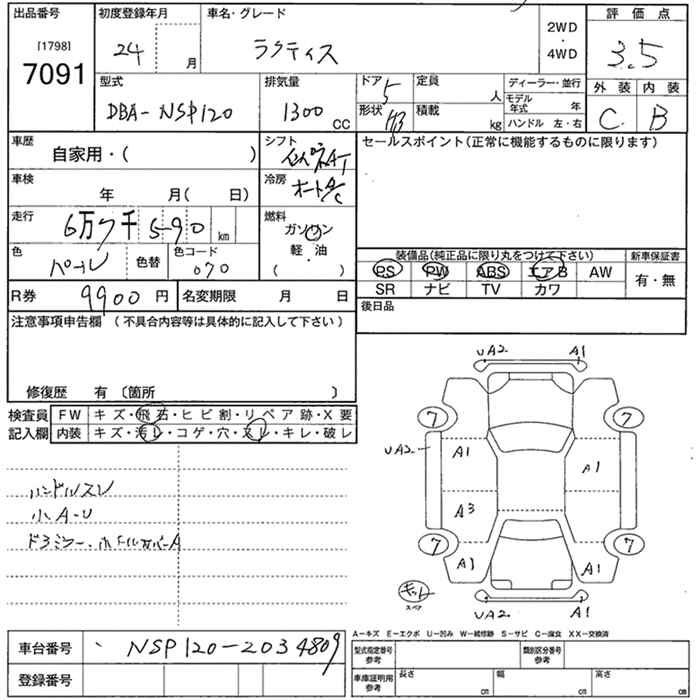 出品番号
[1798]
7091
初度登録年月
24 月
車名・グレード
ラクティス
2WD
・
4WD
評価点
3.5
型式
DBA-NSP120
排気量
1300 CC
ドア 5
形状 HB
定員 人
積載 kg
ディーラー・並行
モデル年式 年
ハンドル 左・右
外装 内装
C B
車歴
自家用・( )
シフト
AT
セールスポイント(正常に機能するものに限ります)
車検
年 月( 日)
冷房
オートA/C
走行
6万7千590 km
燃料
ガソリン
軽・油
( )
色
パール
色替
色コード
070
装備品(純正品に限り丸をつけて下さい)
PS PW ABS エアB AW
SR ナビ TV カワ
新車保証書
有・無
R券 9900円
名変期限 月 日
後日品
注意事項申告欄(不具合内容等は具体的に記入して下さい)
修復歴 有〔箇所 〕
検査員記入欄
FW キズ・飛石・ヒビ割・リペア跡・X要
内装 キズ・汚レ・コゲ・穴・スレ・キレ・破レ
ハンドルスレ
小A-U
ドラミラー・ホイールカバーA
UA2 A1
7 7
UA2
A1 A1
A3
7 7
A1 A1
キット
スペア
UA2 A1
A-キズ E-エクボ U-凹み W-補修跡 S-サビ C-腐食 XX-交換済
車台番号
NSP120-2034809
登録番号
型式指定番号参考
類別区分番号参考
車庫証明用参考
長さ cm
幅 cm
高さ cm